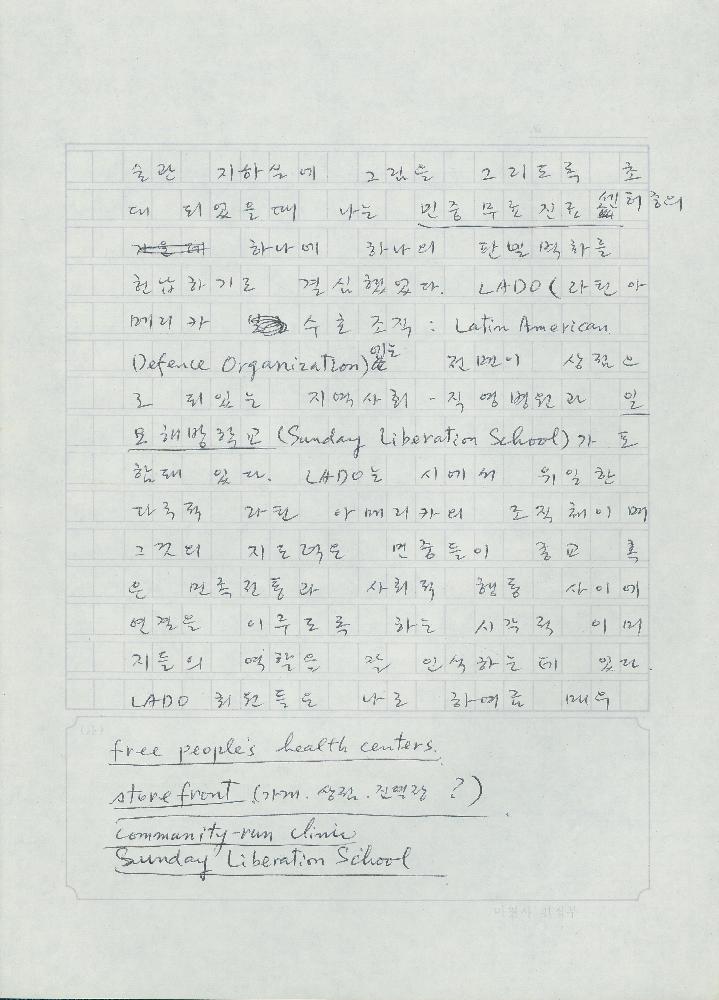 술관 지하실에 그림을 그리도록 초
대 되었을때 나는 민중 무료 진료 센터중의
하나에 하나의 판벽 벽화를
헌납하기로 결심했었다. LADO(라틴 아
메리카 수호 조직: Latin American
Defence Organization)에는 전면이 상점으
로 되있는 지역사회-직영병원과 일
요해방학교(Sunday Liberation School)가 포
함돼 있다. LADO는 시에서 유일한
다국적 라틴 아메리카의 조직체이며
그것의 지도력은 민중들이 종교 혹
은 민족전통과 사회적 행동 사이에
연결을 이루도록 하는 시각적 이미
지들의 역할을 잘 인식하는데 있다.
LADO 회원들은 나로 하여금 매우
free people's health centers.
store front (가게. 상점. 진열장 ?)
community-run clinic
Sunday Liberation School